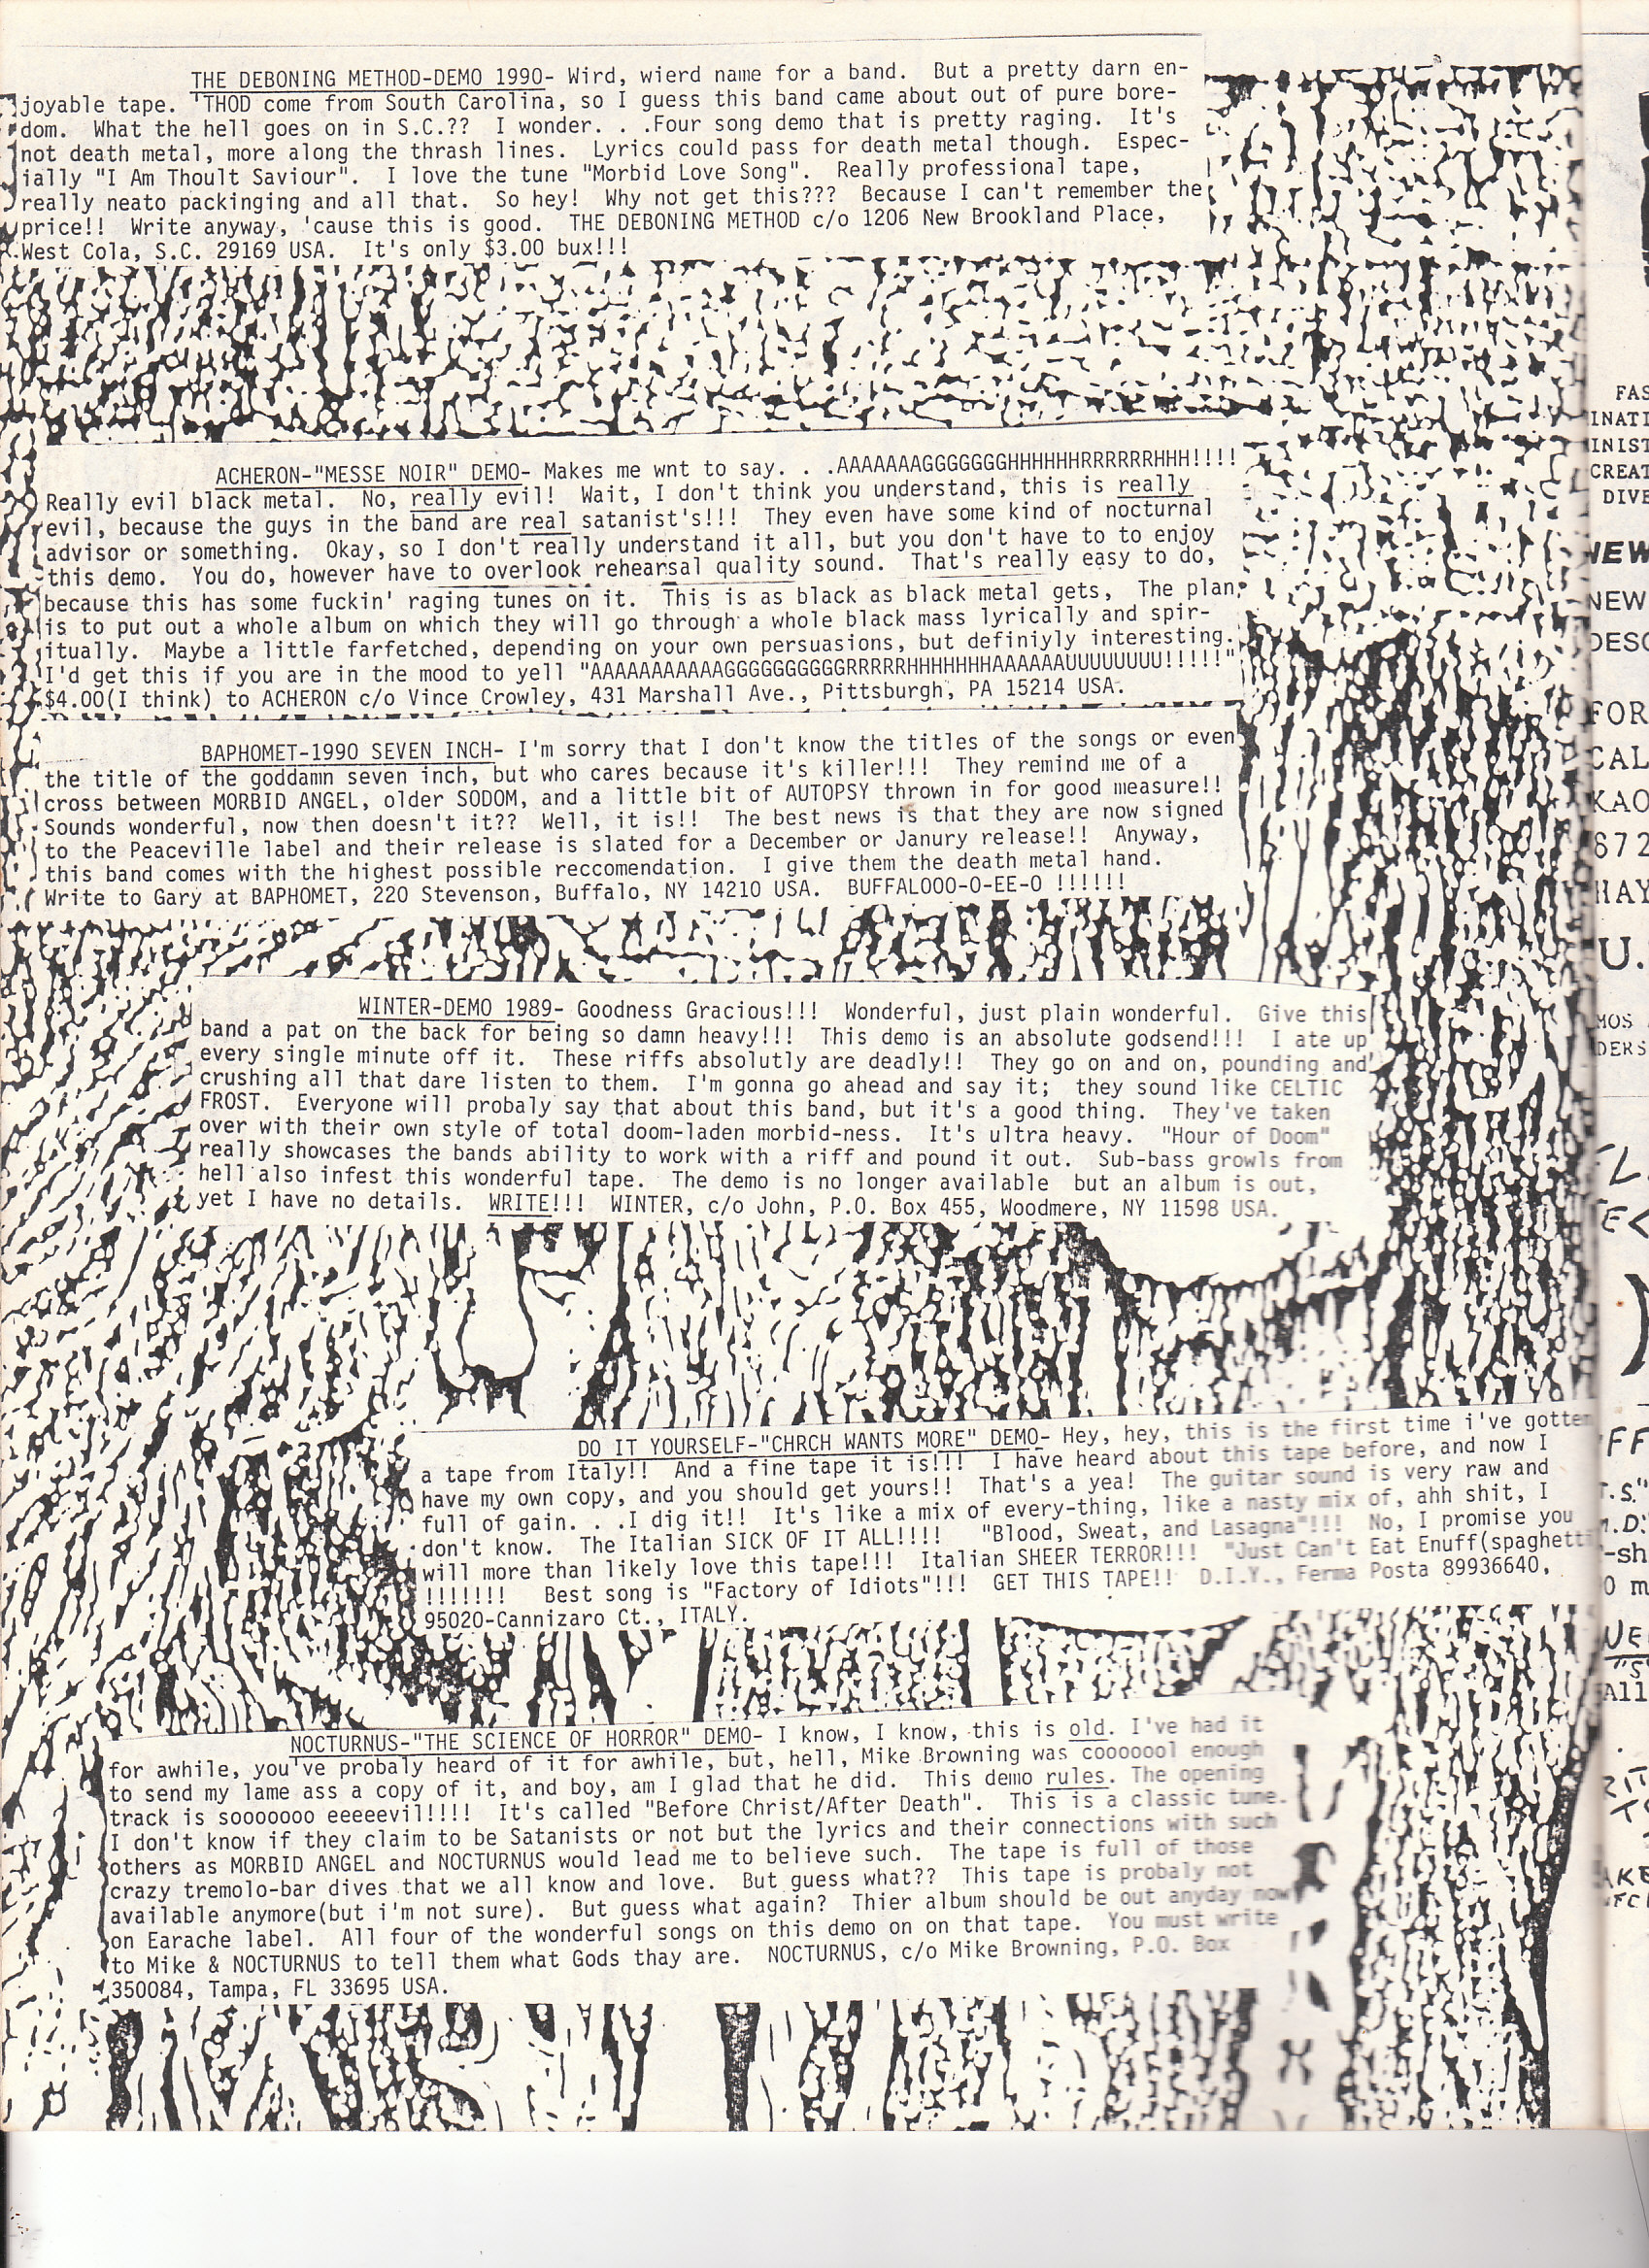 THE DEBONING METHOD-DEMO 1990- Wird, wierd name for a band. But a pretty darn en-
joyable tape. 'THOD come from South Carolina, so I guess this band came about out of pure bore-
dom. What the hell goes on in S.C.?? I wonder. . .Four song demo that is pretty raging. It's
not death metal, more along the thrash lines. Lyrics could pass for death metal though. Espec-
ially "I Am Thoult Saviour". I love the tune "Morbid Love Song". Really professional tape,
really neato packinging and all that. So hey! Why not get this??? Because I can't remember the
price!! Write anyway, 'cause this is good. THE DEBONING METHOD c/o 1206 New Brookland Place,
West Cola, S.C. 29169 USA. It's only $3.00 bux!!!
ACHERON-"MESSE NOIR" DEMO- Makes me wnt to say. . .AAAAAAAGGGGGGGHHHHHHRRRRRRHHH!!!!
Really evil black metal. No, really evil! Wait, I don't think you understand, this is really
evil, because the guys in the band are real satanist's!!! They even have some kind of nocturnal
advisor or something. Okay, so I don't really understand it all, but you don't have to to enjoy
this demo. You do, however have to overlook rehearsal quality sound. That's really easy to do,
because this has some fuckin' raging tunes on it. This is as black as black metal gets, The plan
is to put out a whole album on which they will go through a whole black mass lyrically and spir-
itually. Maybe a little farfetched, depending on your own persuasions, but definiyly interesting.
I'd get this if you are in the mood to yell "AAAAAAAAAAAGGGGGGGGGGRRRRRHHHHHHHAAAAAAUUUUUUUU!!!!!"
$4.00(I think) to ACHERON c/o Vince Crowley, 431 Marshall Ave., Pittsburgh, PA 15214 USA.
BAPHOMET-1990 SEVEN INCH- I'm sorry that I don't know the titles of the songs or even
the title of the goddamn seven inch, but who cares because it's killer!!! They remind me of a
cross between MORBID ANGEL, older SODOM, and a little bit of AUTOPSY thrown in for good measure!!
Sounds wonderful, now then doesn't it?? Well, it is!! The best news is that they are now signed
to the Peaceville label and their release is slated for a December or Janury release!! Anyway,
this band comes with the highest possible reccomendation. I give them the death metal hand.
Write to Gary at BAPHOMET, 220 Stevenson, Buffalo, NY 14210 USA. BUFFALOOO-O-EE-O !!!!!!
WINTER-DEMO 1989- Goodness Gracious!!! Wonderful, just plain wonderful. Give this
band a pat on the back for being so damn heavy!!! This demo is an absolute godsend!!! I ate up
every single minute off it. These riffs absolutly are deadly!! They go on and on, pounding and
crushing all that dare listen to them. I'm gonna go ahead and say it; they sound like CELTIC
FROST. Everyone will probaly say that about this band, but it's a good thing. They've taken
over with their own style of total doom-laden morbid-ness. It's ultra heavy. "Hour of Doom"
really showcases the bands ability to work with a riff and pound it out. Sub-bass growls from
hell also infest this wonderful tape. The demo is no longer available but an album is out,
yet I have no details. WRITE!!! WINTER, c/o John, P.O. Box 455, Woodmere, NY 11598 USA.
DO IT YOURSELF-"CHRCH WANTS MORE" DEMO- Hey, hey, this is the first time i've gotten
a tape from Italy!! And a fine tape it is!!! I have heard about this tape before, and now I
have my own copy, and you should get yours!! That's a yea! The guitar sound is very raw and
full of gain. . .I dig it!! It's like a mix of every-thing, like a nasty mix of, ahh shit, I
don't know. The Italian SICK OF IT ALL!!!! "Blood, Sweat, and Lasagna"!!! No, I promise you
will more than likely love this tape!!! Italian SHEER TERROR!!! "Just Can't Eat Enuff(spaghetti
!!!!!!! Best song is "Factory of Idiots"!!! GET THIS TAPE!! D.I.Y., Ferma Posta 89936640,
95020-Cannizaro Ct., ITALY.
NOCTURNUS-"THE SCIENCE OF HORROR" DEMO- I know, I know, this is old. I've had it
for awhile, you've probaly heard of it for awhile, but, hell, Mike Browning was cooooool enough
to send my lame ass a copy of it, and boy, am I glad that he did. This demo rules. The opening
track is sooooooo eeeeevil!!!! It's called "Before Christ/After Death". This is a classic tune.
I don't know if they claim to be Satanists or not but the lyrics and their connections with such
others as MORBID ANGEL and NOCTURNUS would lead me to believe such. The tape is full of those
crazy tremolo-bar dives that we all know and love. But guess what?? This tape is probaly not
available anymore(but i'm not sure). But guess what again? Thier album should be out anyday now
on Earache label. All four of the wonderful songs on this demo on on that tape. You must write
to Mike & NOCTURNUS to tell them what Gods thay are. NOCTURNUS, c/o Mike Browning, P.O. Box
350084, Tampa, FL 33695 USA.
FAS
INATI
INIST
CREAT
DIVE
NEW
NEW
DESC
FOR
CAL
KAO
672
HAY
U.
MOS
DERS